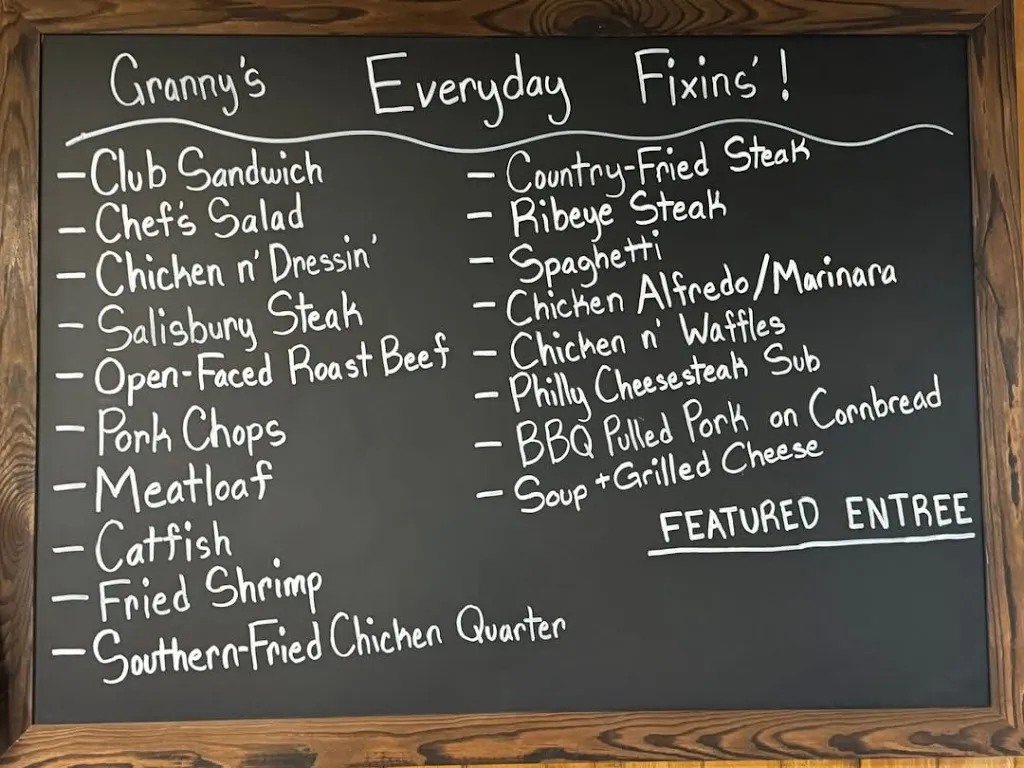 Granny's Everyday Fixins'!
- Club Sandwich
- Chef's Salad
- Chicken n' Dressin'
- Salisbury Steak
- Open-Faced Roast Beef
- Pork Chops
- Meatloaf
- Catfish
- Fried Shrimp
- Southern-Fried Chicken Quarter
- Country-Fried Steak
- Ribeye Steak
- Spaghetti
- Chicken Alfredo/Marinara
- Chicken n' Waffles
- Philly Cheesesteak Sub
- BBQ Pulled Pork on Cornbread
- Soup + Grilled Cheese
FEATURED ENTREE